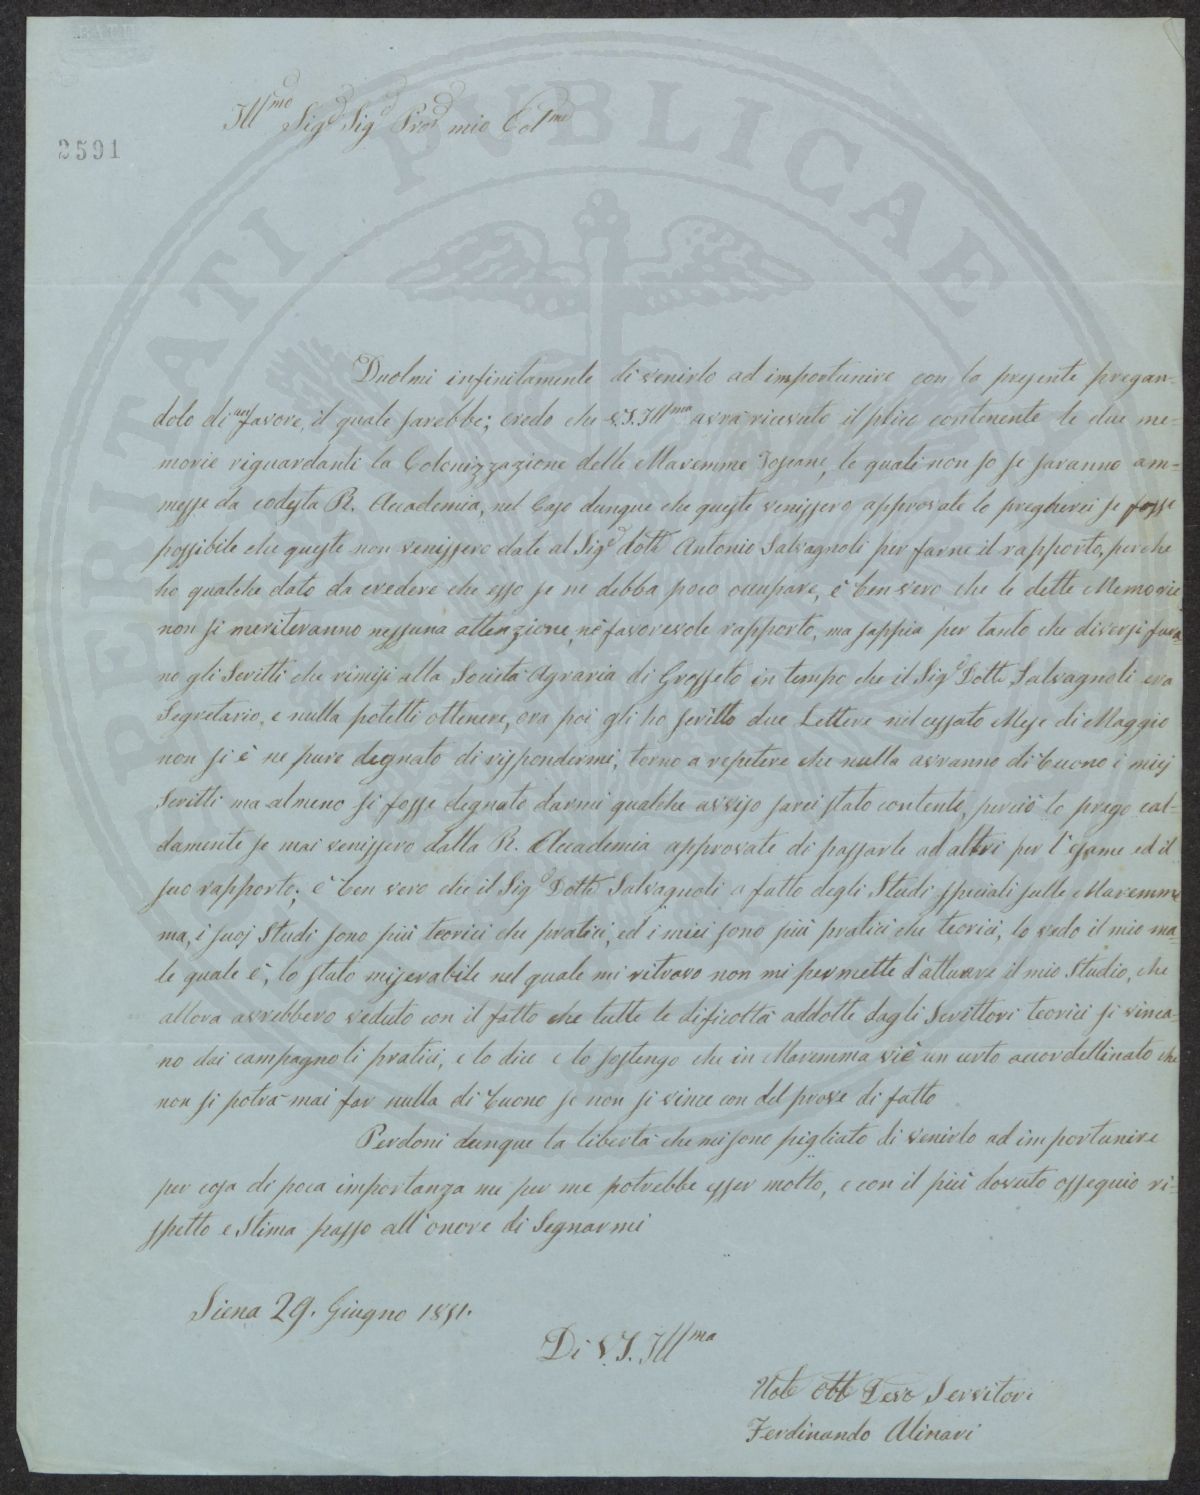 Ill.mo Sig.e Sig.e Pro.e mio Col.mo
2591
Duolmi infinitamente di venirlo ad importunire con la presente pregan-
dolo di un favore, il quale sarebbe; credo che V.S. Ill.ma avrà ricevuto il plico contenente le due me-
morie riguardanti la Colonizzazione delle Maremme Toscane, le quali non so se saranno am-
messe da codesta R. Accademia, nel Caso dunque che queste venissero approvate lo pregherei se fosse
possibile che queste non venissero date al Sig.e dott. Antonio Salvagnoli per farne il rapporto, perche
ho qualche dato da credere che esso se ne debba poco occupare, è ben vero che le dette Memorie
non si meriteranno nessuna attenzione, nè favorevole rapporto, ma sappia per tanto che diversi furo-
no gli Scritti che rimisi alla Società Agraria di Grosseto in tempo che il Sig.e Dott. Salvagnoli era
Segretario, e nulla potetti ottenere, ora poi gli ho scritto due Lettere nel cessato Mese di Maggio
non si è ne pure degnato di rispondermi, torno a repetere che nulla avranno di buono i miej
Scritti ma almeno si fosse degnato darmi qualche avviso sarei stato contento, perciò lo prego cal-
damente se mai venissero dalla R. Accademia approvate di passarle ad altri per l'Esame ed il
suo rapporto; è ben vero che il Sig.e Dott. Salvagnoli a fatto degli Studi speciali sulle Maremme
ma, i suoj Studi sono più teorici che pratici, ed i miei sono più pratici che teorici, lo vedo il mio ma-
le quale è, lo stato miserabile nel quale mi ritrovo non mi permette d'attuare il mio Studio, che
allora avrebbero veduto con il fatto che tutte le dificoltà addotte dagli Scrittori teorici si vinca-
no dai campagnoli pratici, e lo dico e lo sostengo che in Maremma viè un certo accordellinato che
non si potrà mai far nulla di buono se non si vince con del prove di fatto
Perdoni dunque la libertà che mi sono pigliato di venirlo ad importunire
per cosa di poca importanza me per me potrebbe esser molto, e con il più dovuto ossequio ri-
spetto e Stima passo all'onore di Segnarmi
Siena 29. Giugno 1851.
Di V.S. Ill.ma
Obb Devo Servitore
Ferdinando Alinari
PERITATI PUBLICAE